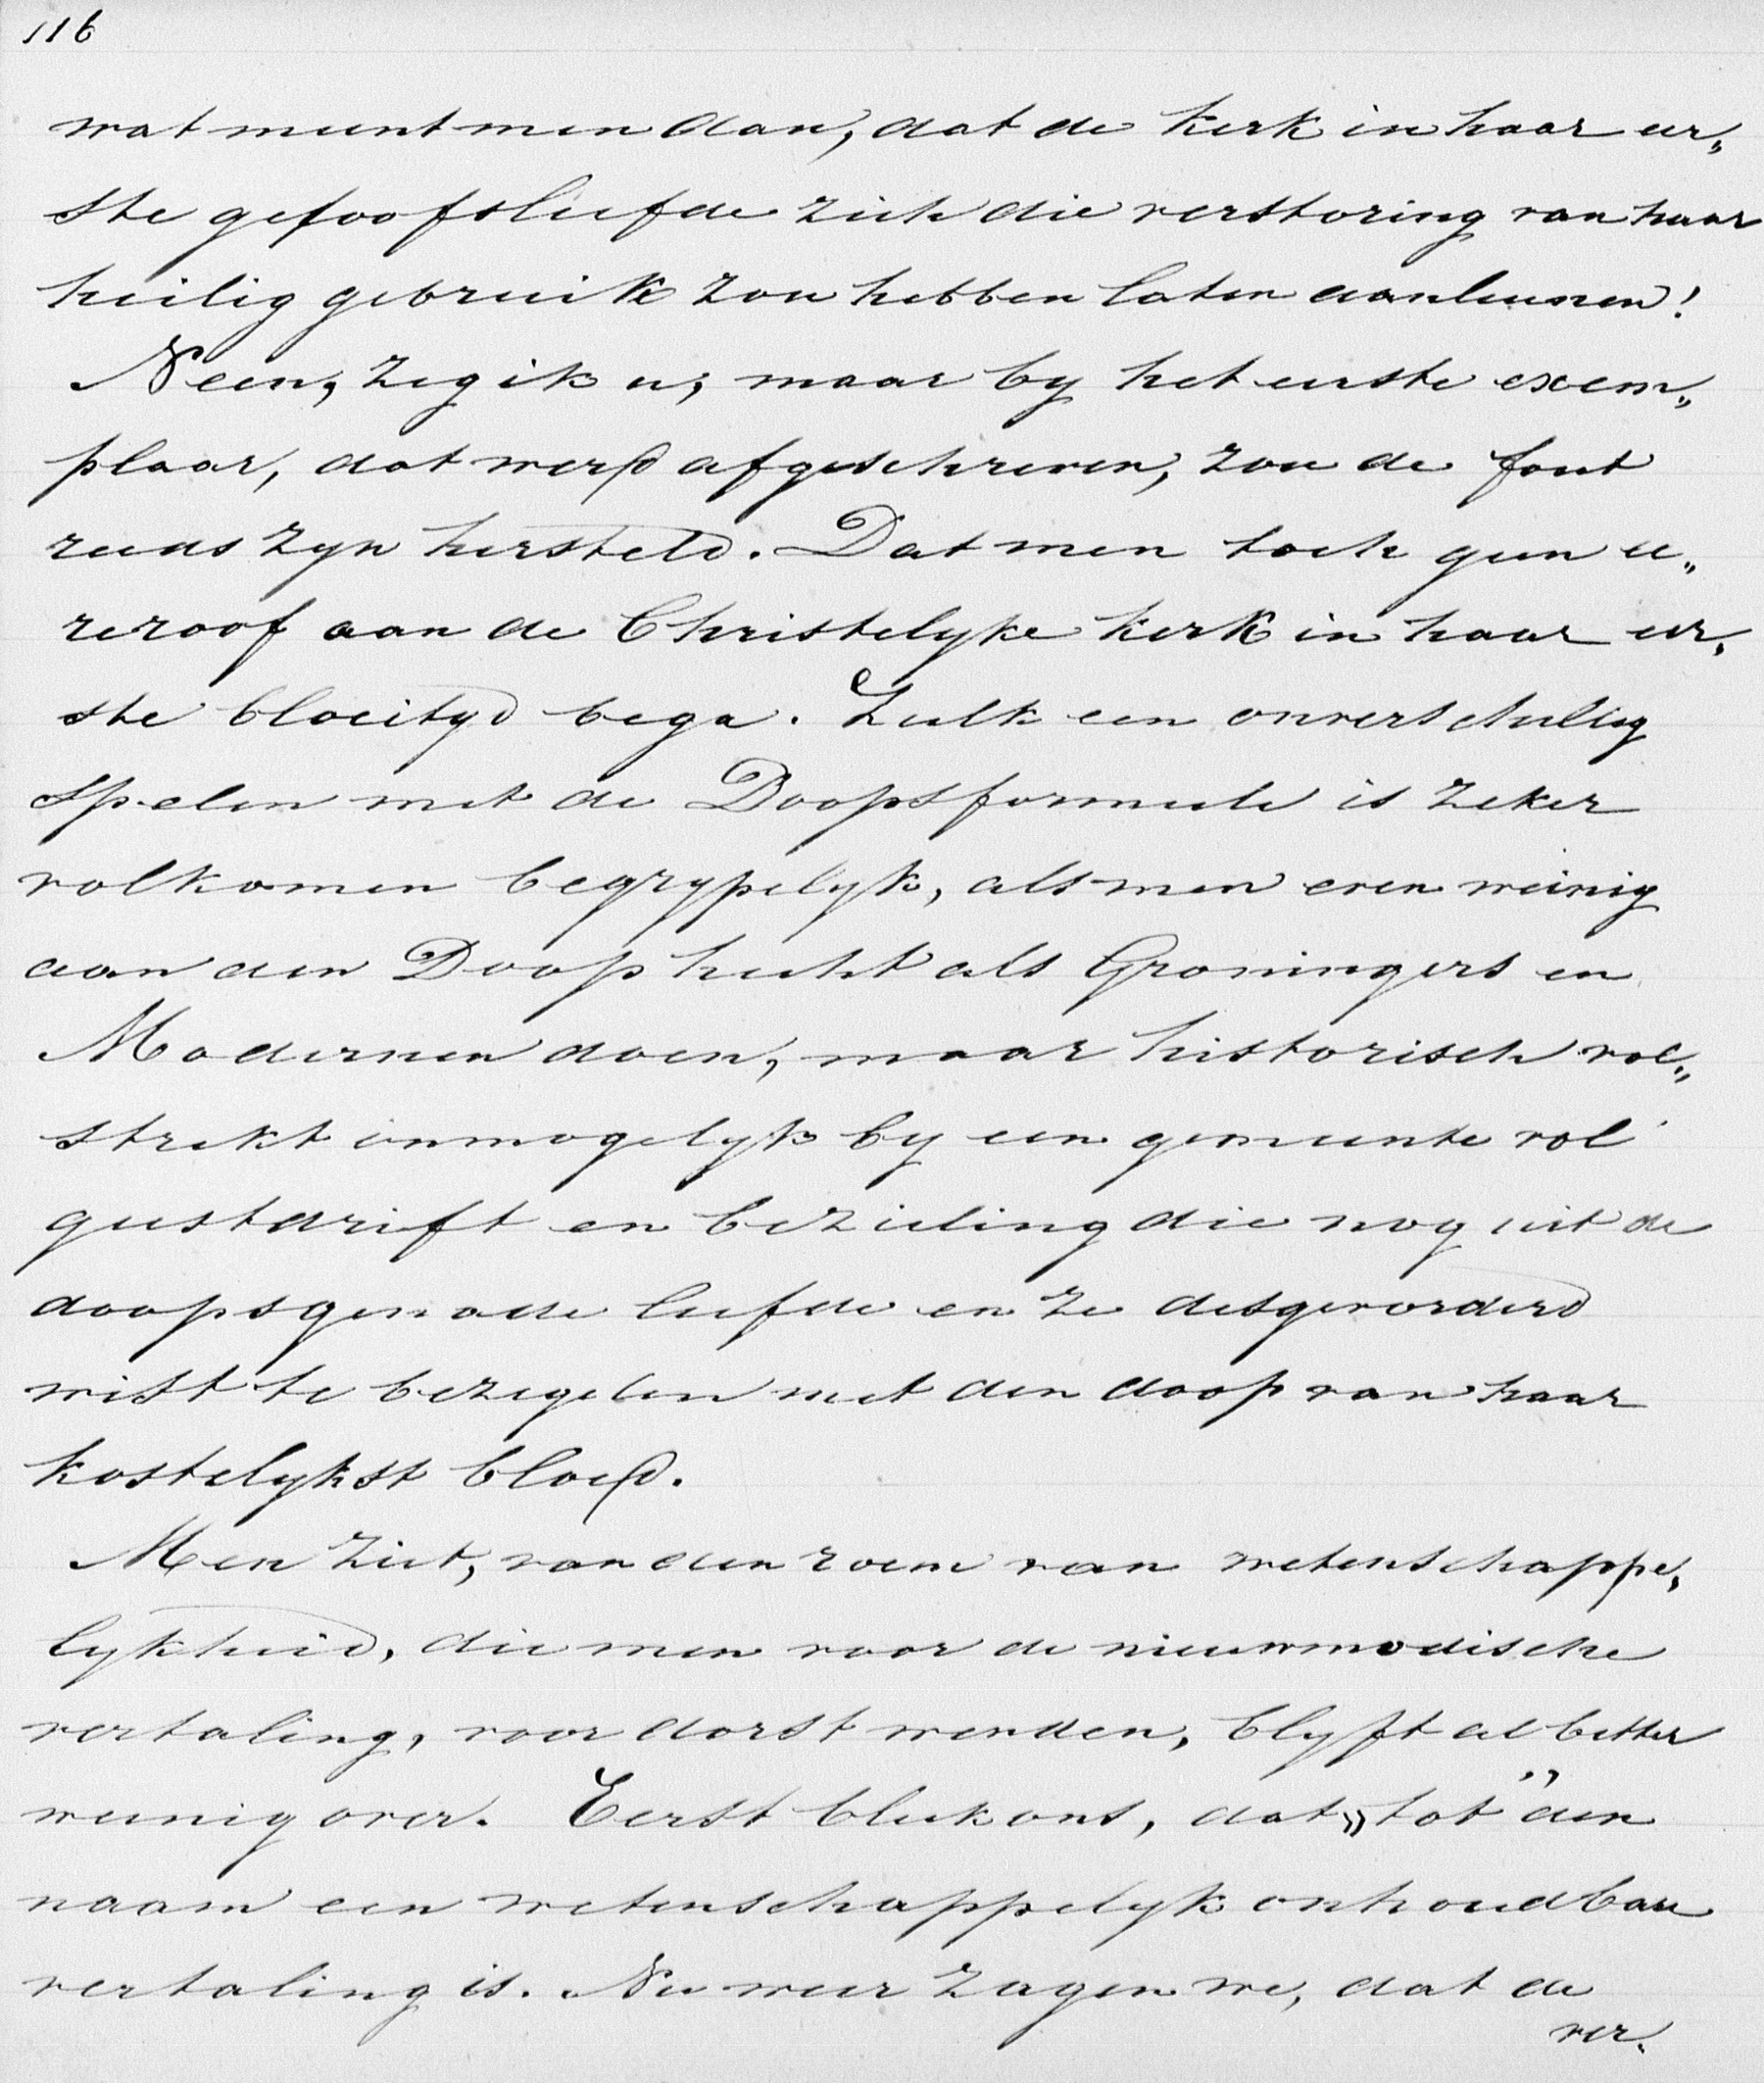 116
wat meent men dan, dat de kerk in haar eer„
ste geloofsliefde zich die verstoring van haar
heilig gebruik zou hebben laten aanleunen!
Neen, zeg ik u, maar by het eerste exem„
plaar, dat werd afgeschreven, zou de fout
reeds zyn hersteld. Dat men toch geen ee„
reroof aan de Christelyke kerk in haar eer„
ste bloeityd bega. Zulk een onverschillig
spelen met de Doopsformule is zeker
volkomen begrypelyk, als men even weinig
aan den Doop hecht als Groningers en
Modernen doen, maar historisch vol„
strekt onmogelyk by een gemeente vol
geestdrift en bezieling die nog uit de
doopsgenade leefde en ze desgevorderd
wist te bezegelen met den doop van haar
kostelykst bloed.
Men ziet, van den roem van wetenschappe„
lykheid, die men voor de nieuwmodische
vertaling, voor dorst wenden, blyft al bitter
weinig over. Eerst bleek ons, dat „tot” den
naam een wetenschappelyk onhoudbare
vertaling is. Nu weer zagen we, dat de
ver.